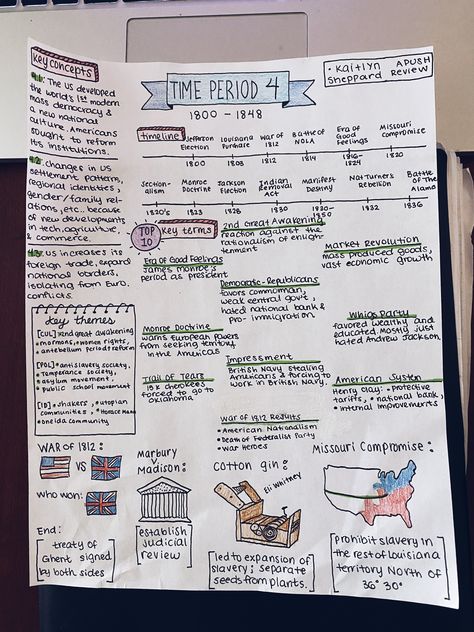 Key Concepts
4.1: The US developed
the world's 1st modern
mass democracy &
a new national
culture. Americans
sought to reform
its institutions.
4.2: changes in US
settlement pattern,
regional identities,
gender/family rel-
ations, etc., because
of new developments
in tech, agriculture,
& commerce.
4.3: US increases its
foreign trade, expand
national borders,
isolating from Euro.
conflicts.
key themes
[CUL] 2nd great awakening
• mormons, • women rights,
• antebellum period + reform
[POL] antislavery society,
• Temperance society,
• asylum movement,
• public school movement
[ID] • shakers, • utopian
communities, • Horace Mann
oneida community
TIME PERIOD 4
1800 - 1848
• Kaitlyn APUSH
Sheppard Review
timeline
Jefferson
Election
Louisiana
Purchase
War of
1812
Battle of
NOLA
Era of
Good
Feelings
Missouri
Compromise
1800
1803
1812
1814
1816-
1824
1820
Section-
alism
Monroe
Doctrine
Jackson
Election
Indian
Removal
Act
Manifest
Destiny
Nat Turner's
Rebellion
Battle of
The Alamo
1820's
1823
1828
1830
1830-
1850
1832
1836
TOP
10
Key terms
Era of Good Feelings
James Monroe's
period as president
2nd Great Awakening
reaction against the
rationalism of enligh-
tenment
Market Revolution
mass produced goods,
vast economic growth
Democratic-Republicans
favors common man,
weak central govt,
hated national bank &
pro-immigration
Monroe Doctrine
warns european powers
from seeking territory
in the Americas
Whigs Party
favored wealthy and
educated. Mostly just
hated Andrew Jackson.
Impressment
British Navy stealing
Americans & forcing to
work in British Navy.
Trail of Tears
15k cherokees
forced to go to
oklahoma
American System
Henry Clay: • protective
tariffs, • national bank,
• internal improvements
War of 1812 Results
• American Nationalism
• Death of Federalist Party
• War Heroes
WAR OF 1812:
VS
Who won:
End:
treaty of
Ghent signed
by both sides
Marbury
v
Madison:
establish
judicial
review
Cotton gin:
Eli Whitney
led to expansion of
slavery; separate
seeds from plants.
Missouri Compromise:
prohibit slavery in
the rest of Louisiana
territory North of
36° 30°